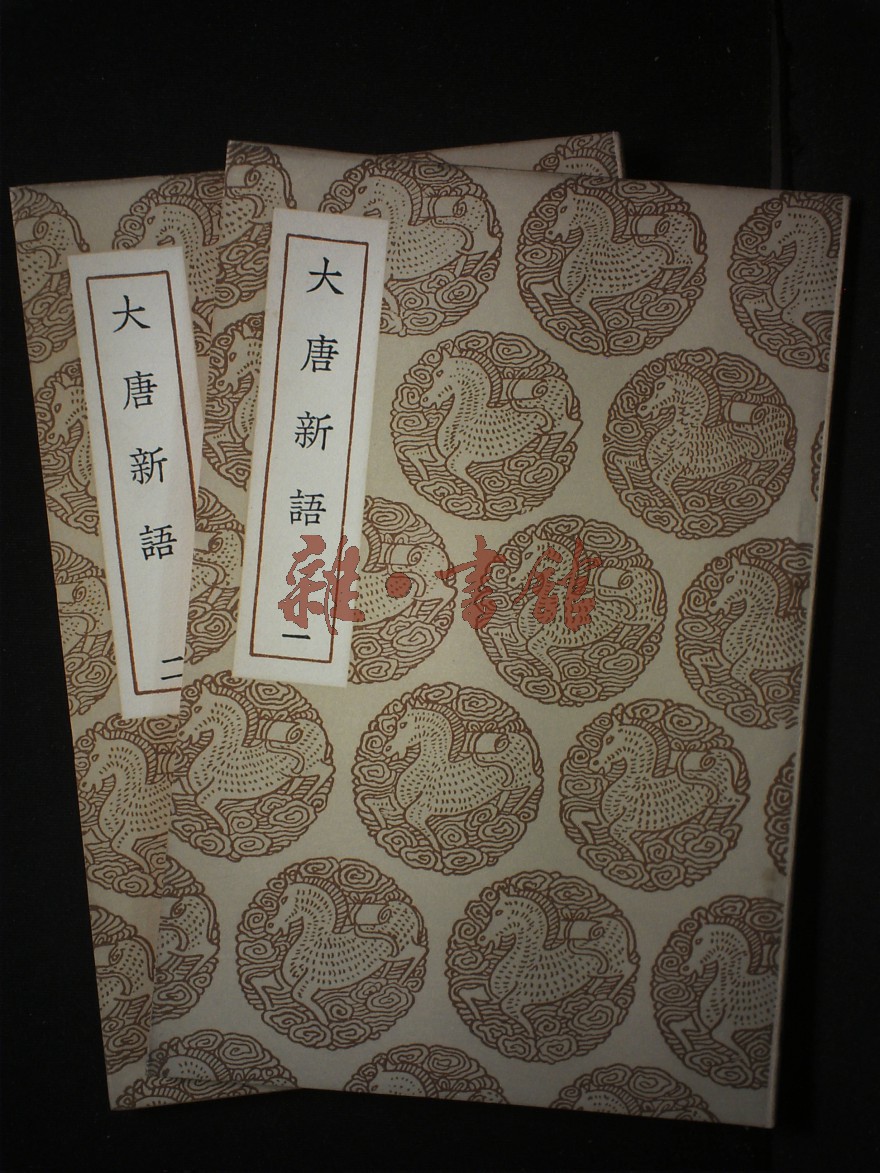 大唐新語 一
大唐新語 二
雜·書館